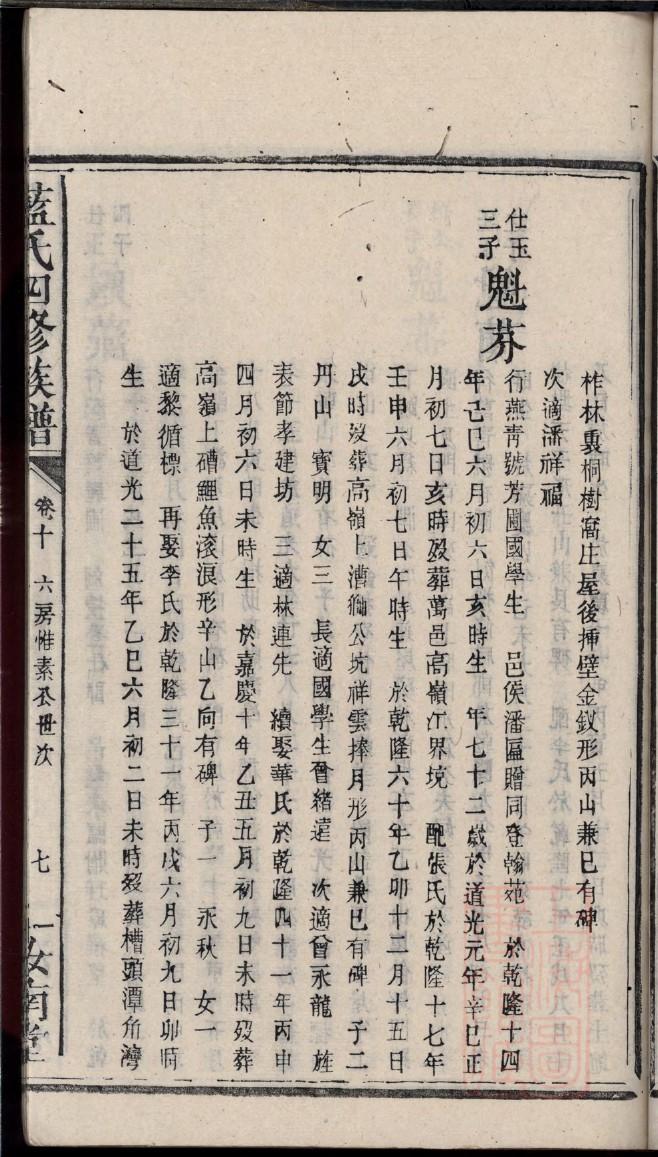 柞林裏桐樹窩庄屋後揷壁金釵形丙山兼巳有碑
次適潘祥福
仕玉
三子
魁芬
行燕靑號芳圃國學生 邑侯潘匾贈同登翰苑 於乾隆十四
年己巳六月初六日亥時生 年七十二歲於道光元年辛巳正
月初七日亥時殁葬萬邑高嶺江界境 配張氏於乾隆十七年
壬申六月初七日午時生 於乾隆六十年乙卯十二月十五日
戌時殁葬高嶺上漕獅公坑祥雲捧月形丙山兼巳有碑 子二
丹山 寳明 女三 長適國學生曾緒遠 次適曾永龍 旌
表節孝建坊 三適林連先 續娶華氏於乾隆四十一年丙申
四月初六日未時生 於嘉慶十年乙丑五月初九日未時殁葬
高嶺上磄鯉魚滚浪形辛山乙向有碑 子一 永秋 女一
適黎循標 再娶李氏於乾隆三十一年丙戌六月初九日卯時
生 於道光二十五年乙巳六月初二日未時殁葬槽頭潭角灣
藍氏四修族譜
卷十 六房惟素公世次
七
汝南堂